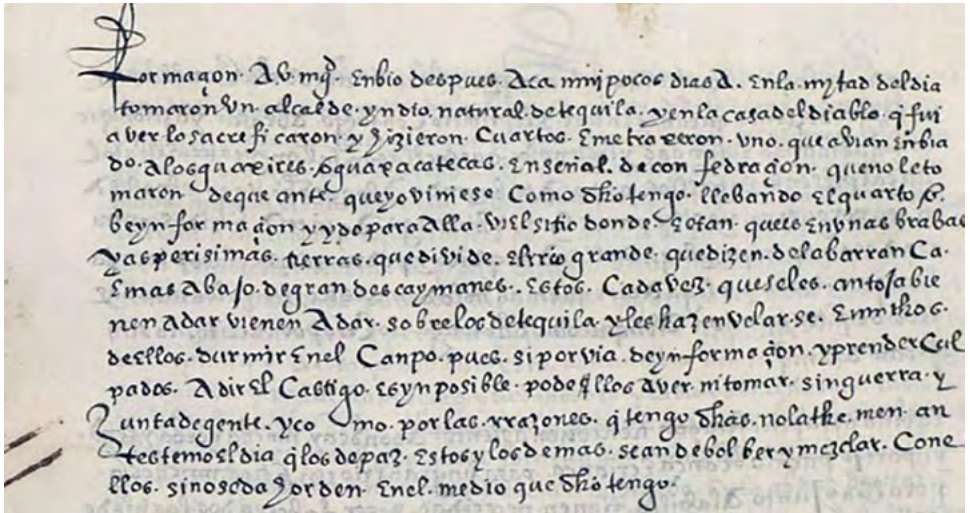 formaçon. A V. mgd. Enbio despues. Aca mui pocos dias A. En la mytad del dia
tomaron Vn. alcalde. yndio. natural. de tequila. y en la casa del diablo. q fui
a ver. lo sacreficaron. y hizieron. Cuartos. E metraxeron. vno. que avian Enbia
do. A los guaxires. o guaxacatecas. En señal. de confedraçon. que no le to
maron de que ante. que yo viniese. Como dho tengo. llebando El quarto
be ynformaçon y ydo para Alla. vi el sitio donde. Estan. ques En vnas brabas
y asperisimas. tierras. que divide. El rrio grande. que dizen. de la barranCa.
E mas Abajo. de grandes caymanes. Estos. Cada vez. que se les. antoja bie
nen A dar vienen A dar. sobre los de tequila. y les hazen velar. se. E mnthos.
de ellos. durmir En el Canpo. pues. si por via. de ynformaçon. y prender Cul
pados. A dir El Castigo. es ynposible. podellos aver. ni tomar. sin guerra. y
Junta de gente. y co mo. por las. rrazones. q tengo dhas. no la the. men. an
tes temo El dia q los de paz. Estos y los demas. se an de bolber y mezclar. Cone
llos. si no se da horden. En el. medio que dho tengo.